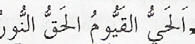 اَلْحَيُّ الْقَيُّومُ الْحَقُّ النُّورُ